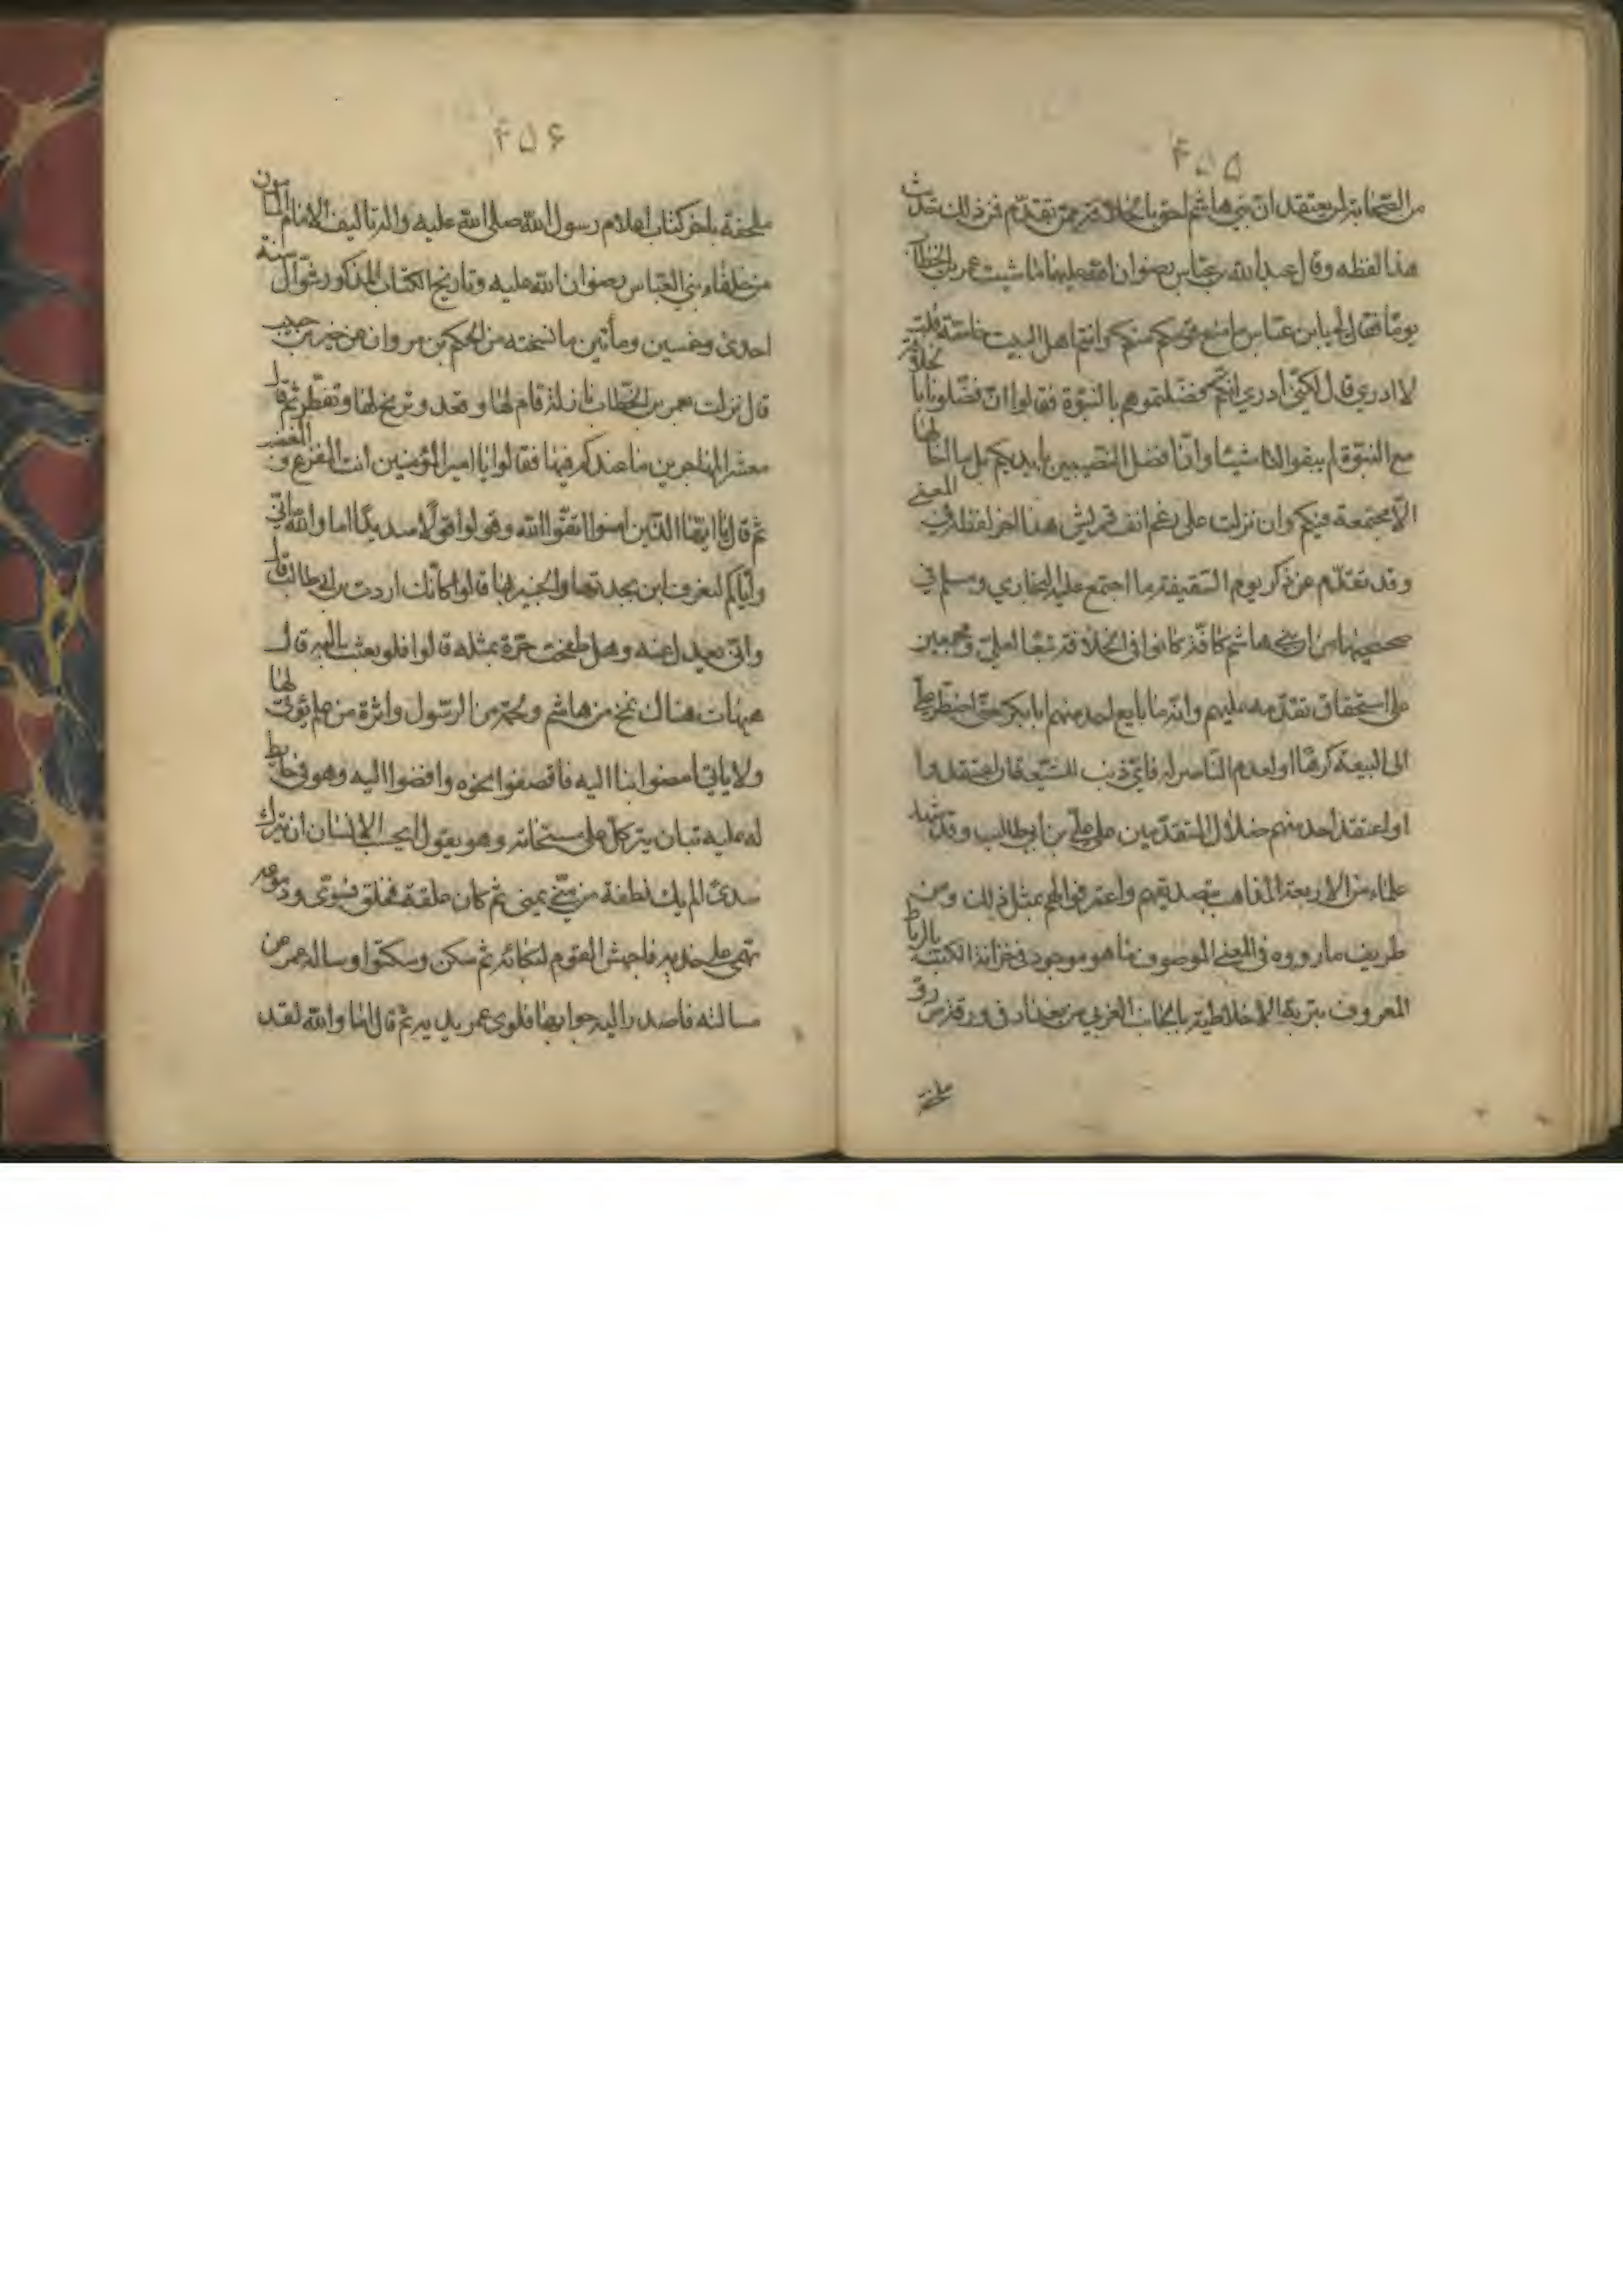 ۴۵۵
من الصحابة لم يعتقد ان بني هاشم احق بالخلافة ممن تقدم فمن ذلك حديث
هذا لفظه وقال عبد الله بن عباس رضوان الله عليهما ماشيت عمر بن الخطاب
يوما فقال لي يا ابن عباس ما منع قومكم منكم وانتم اهل البيت خاصة قلت
لا ادري قال لكني ادري انكم فضلتموهم بالنبوة فقالوا ان فضلونا بالخلافة
مع النبوة لم يبقوا لنا شيئا وان افضل النصيبين بايديكم بل ما اخالها
الا مجتمعة فيكم وان نزلت على رغم انف قريش هذا اخر لفظه في المعنى
وقد تقدم عن ذكر يوم السقيفة ما اجتمع عليه البخاري ومسلم في
صحيحهما من ان بني هاشم كافة كانوا في الخلافة تبعا لعلي ومجمعين
على استحقاق تقدمه عليهم وانه ما بايع احد منهم ابا بكر حتى اضطر علي
الى البيعة كرها او لعدم الناصر له فاي ذنب للشيعة فان اعتقدوا
او اعتقد احد منهم ضلال المتقدمين على علي بن ابي طالب وقد شهد
علماء من الاربعة المذاهب بتصديقهم واعترفوا لهم بمثل ذلك ومن
طريف ما رووه في المعنى الموصوف ما هو موجود في خزانة الكتب بالرباط
المعروف بتربة الاخلاطية بالجانب الغربي من بغداد في ورقة من رق
ملحقة
۴۵۶
ملحقة باخر كتاب اعلام رسول الله صلى الله عليه واله تاليف الامام المامون
من خلفاء بني العباس رضوان الله عليه وتاريخ الكتاب المذكور شوال سنة
احدى وخمسين ومأتين ما نسخته من الحكم بن مروان عن خير بن حبيب
قال نزلت بعمر بن الخطاب نازلة قام لها وقعد وترنح لها وتقطر ثم قال
معشر المهاجرين ما عندكم فيها فقالوا يا امير المؤمنين انت المفزع و
ثم قال يا ايها الذين امنوا اتقوا الله وقولوا قولا سديدا اما والله اني
واياكم لنعرف ابن بجدتها والخبير بها قالوا كانك اردت بن ابي طالب قال
واني يعدل عنه وهل طفحت حرة بمثله قالوا فلو بعثت اليه قال
هيهات هناك شمخ من هاشم ولحمة من الرسول واثرة من علم يؤتى لها
ولا ياتي امضوا بنا اليه فاقصفوا نحوه وافضوا اليه وهو في حايط
له عليه تبان يتركل على مسحاته وهو يقول ايحسب الانسان ان يترك
سدى الم يك نطفة من مني يمنى ثم كان علقة فخلق فسوى ودموعه
تهمي على خديه فاجهش القوم لبكائه ثم سكن وسكتوا وساله عمر عن
مسالته فاصدر اليه جوابها فلوى عمر يديه ثم قال اما والله لقد